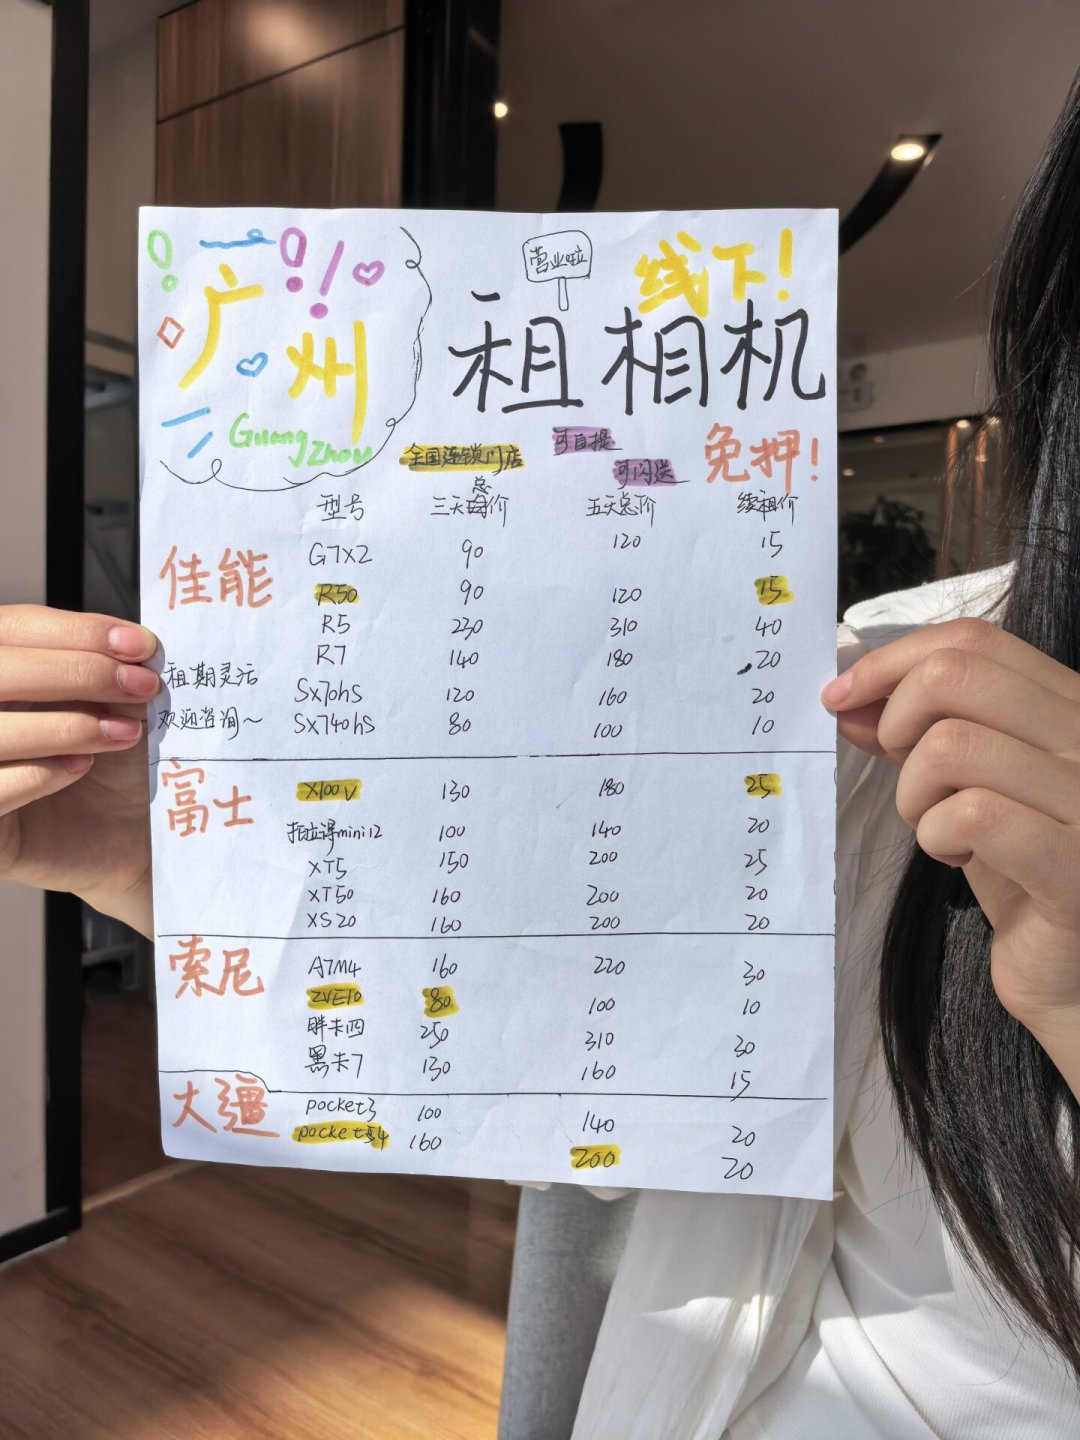 广州
GuangZhou
营业啦
线下!
租相机
全国连锁门店
可自提
可闪送
免押!
型号 三天总价 五天总价 续租价
佳能
G7X2 90 120 15
R50 90 120 15
R5 230 310 40
R7 140 180 20
SX70hS 120 160 20
SX740hS 80 100 10
租期灵活
欢迎咨询~
富士
X100V 130 180 25
拍立得mini12 100 140 20
XT5 150 200 25
XT50 160 200 20
XS20 160 200 20
索尼
A7M4 160 220 30
ZVE10 80 100 10
胖卡四 250 310 30
黑卡7 130 160 15
大疆
pocket3 100 140 20
pocket4 160 200 20